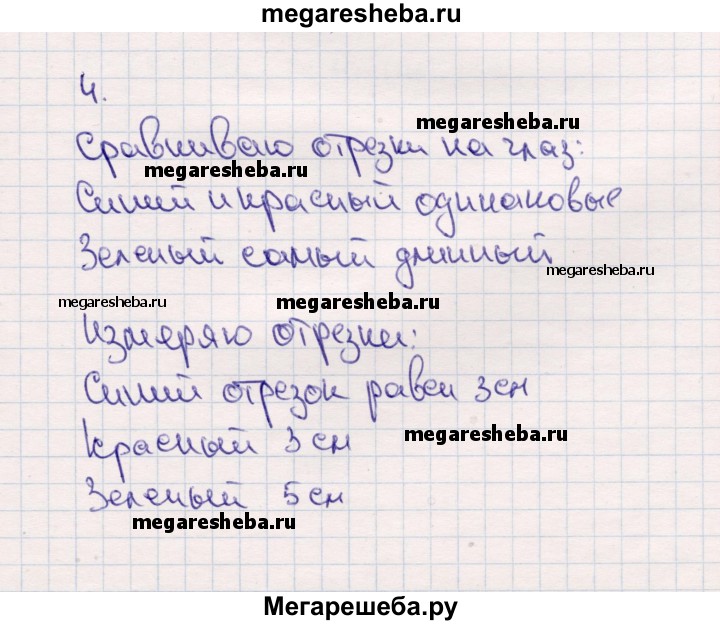 megaresheba.ru
4.
megaresheba.ru
Сравниваю отрезки на глаз:
megaresheba.ru
Синий и красный одинаковые
Зеленый самый длинный
megaresheba.ru
megaresheba.ru
megaresheba.ru
Измеряю отрезки:
Синий отрезок равен 3см
Красный 3 см
megaresheba.ru
Зеленый 5 см
megaresheba.ru
Мегарешеба.ру